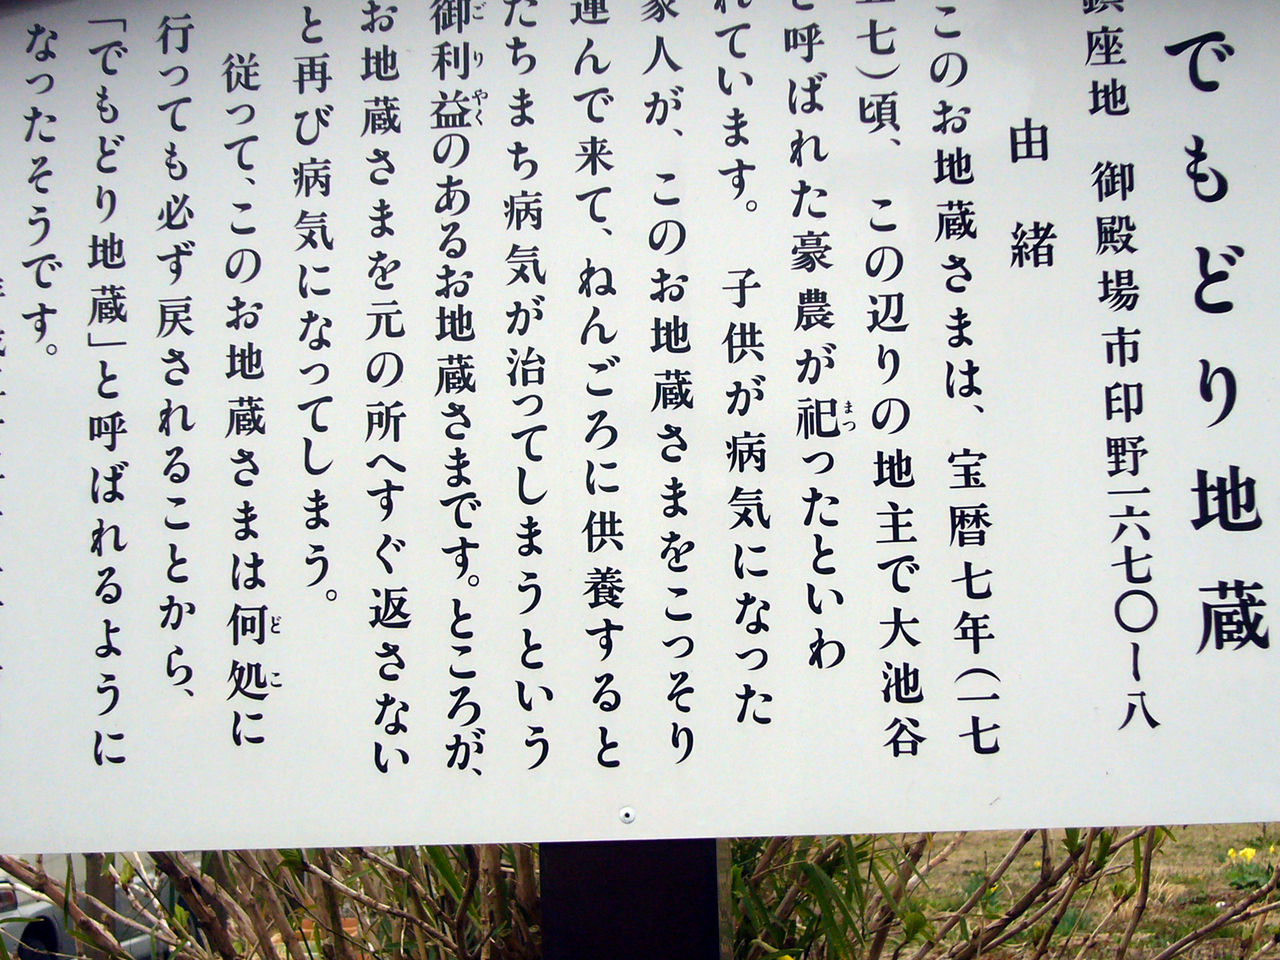 でもどり地蔵
鎮座地 御殿場市印野一六七〇ー八
由緒
このお地蔵さまは、宝暦七年(一七
五七)頃、この辺りの地主で大池谷
と呼ばれた豪農が祀ったといわ
まつ
れています。 子供が病気になった
家人が、このお地蔵さまをこっそり
運んで来て、ねんごろに供養すると
たちまち病気が治ってしまうという
御利益のあるお地蔵さまです。ところが、
ごりやく
お地蔵さまを元の所へすぐ返さない
と再び病気になってしまう。
従って、このお地蔵さまは何処に
どこ
行っても必ず戻されることから、
「でもどり地蔵」と呼ばれるように
なったそうです。